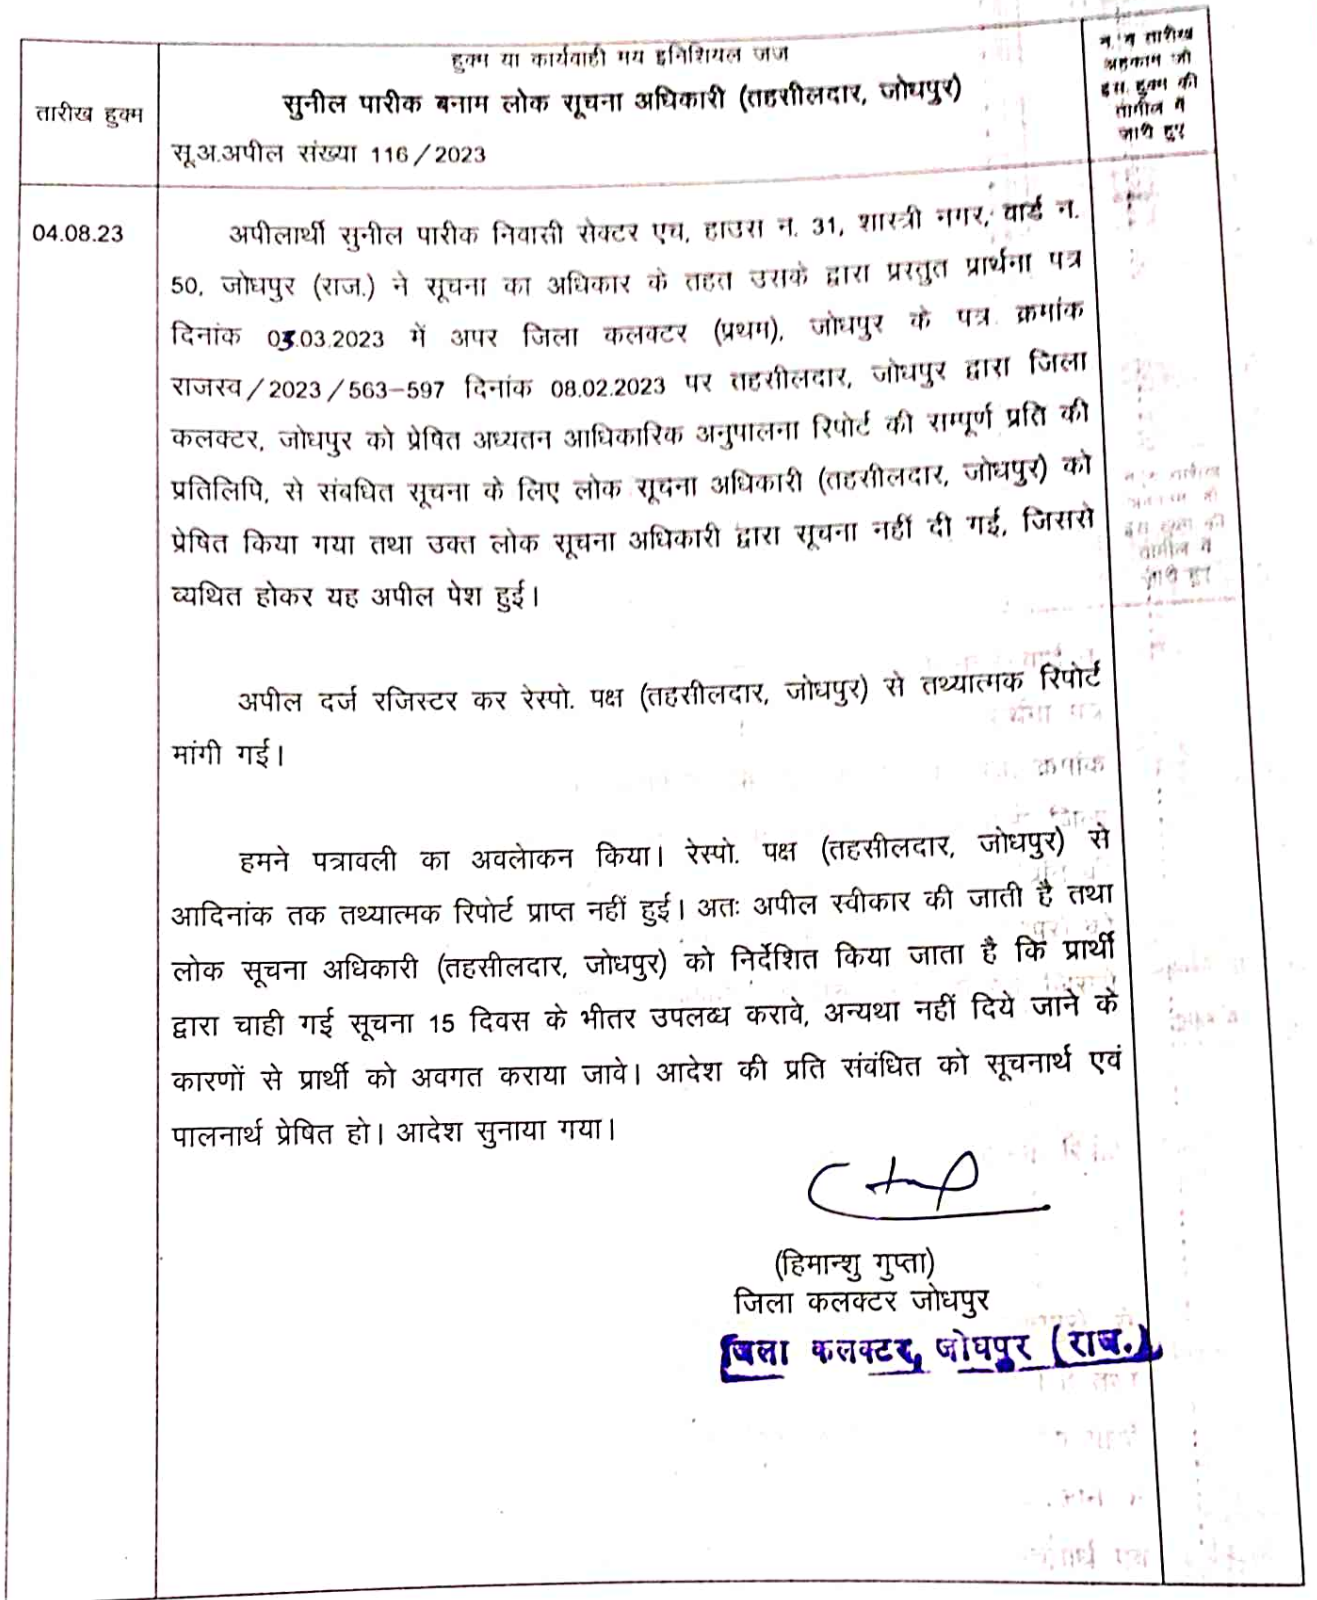 हुक्म या कार्यवाही मय इनिशियल जज
न. व तारीख
अहकाम जो
इस हुक्म की
तामील में
जारी हुए
तारीख हुक्म
सुनील पारीक बनाम लोक सूचना अधिकारी (तहसीलदार, जोधपुर)
सू.अ.अपील संख्या 116/2023
04.08.23
अपीलार्थी सुनील पारीक निवासी सेक्टर एच, हाउस न. 31, शास्त्री नगर, वार्ड न.
50, जोधपुर (राज.) ने सूचना का अधिकार के तहत उसके द्वारा प्रस्तुत प्रार्थना पत्र
दिनांक 03.03.2023 में अपर जिला कलक्टर (प्रथम), जोधपुर के पत्र क्रमांक
राजस्व/2023/563–597 दिनांक 08.02.2023 पर तहसीलदार, जोधपुर द्वारा जिला
कलक्टर, जोधपुर को प्रेषित अध्यतन आधिकारिक अनुपालना रिपोर्ट की सम्पूर्ण प्रति की
प्रतिलिपि, से संबधित सूचना के लिए लोक सूचना अधिकारी (तहसीलदार, जोधपुर) को
प्रेषित किया गया तथा उक्त लोक सूचना अधिकारी द्वारा सूचना नहीं दी गई, जिससे
व्यथित होकर यह अपील पेश हुई।
अपील दर्ज रजिस्टर कर रेस्पो. पक्ष (तहसीलदार, जोधपुर) से तथ्यात्मक रिपोर्ट
मांगी गई।
हमने पत्रावली का अवलोकन किया। रेस्पो. पक्ष (तहसीलदार, जोधपुर) से
आदिनांक तक तथ्यात्मक रिपोर्ट प्राप्त नहीं हुई। अतः अपील स्वीकार की जाती है तथा
लोक सूचना अधिकारी (तहसीलदार, जोधपुर) को निर्देशित किया जाता है कि प्रार्थी
द्वारा चाही गई सूचना 15 दिवस के भीतर उपलब्ध करावे, अन्यथा नहीं दिये जाने के
कारणों से प्रार्थी को अवगत कराया जावे। आदेश की प्रति संबंधित को सूचनार्थ एवं
पालनार्थ प्रेषित हो। आदेश सुनाया गया।
(हिमान्शु गुप्ता)
जिला कलक्टर जोधपुर
जिला कलक्टर, जोधपुर (राज.)